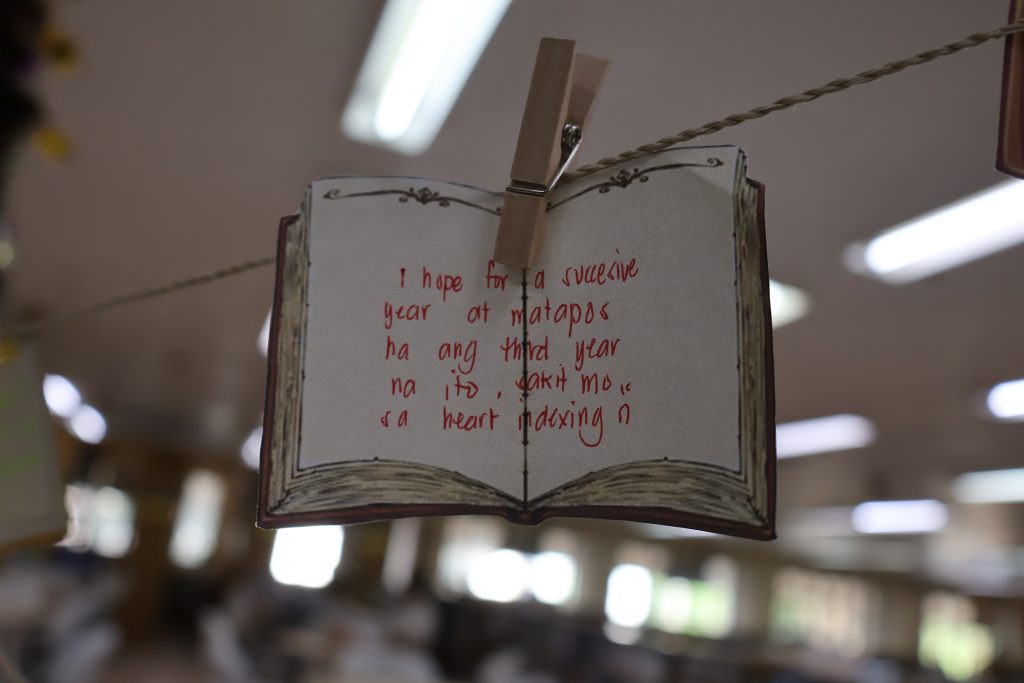 I hope for a succesive
year at matapos
na ang third year
na ito, sakit mo
sa heart indexing